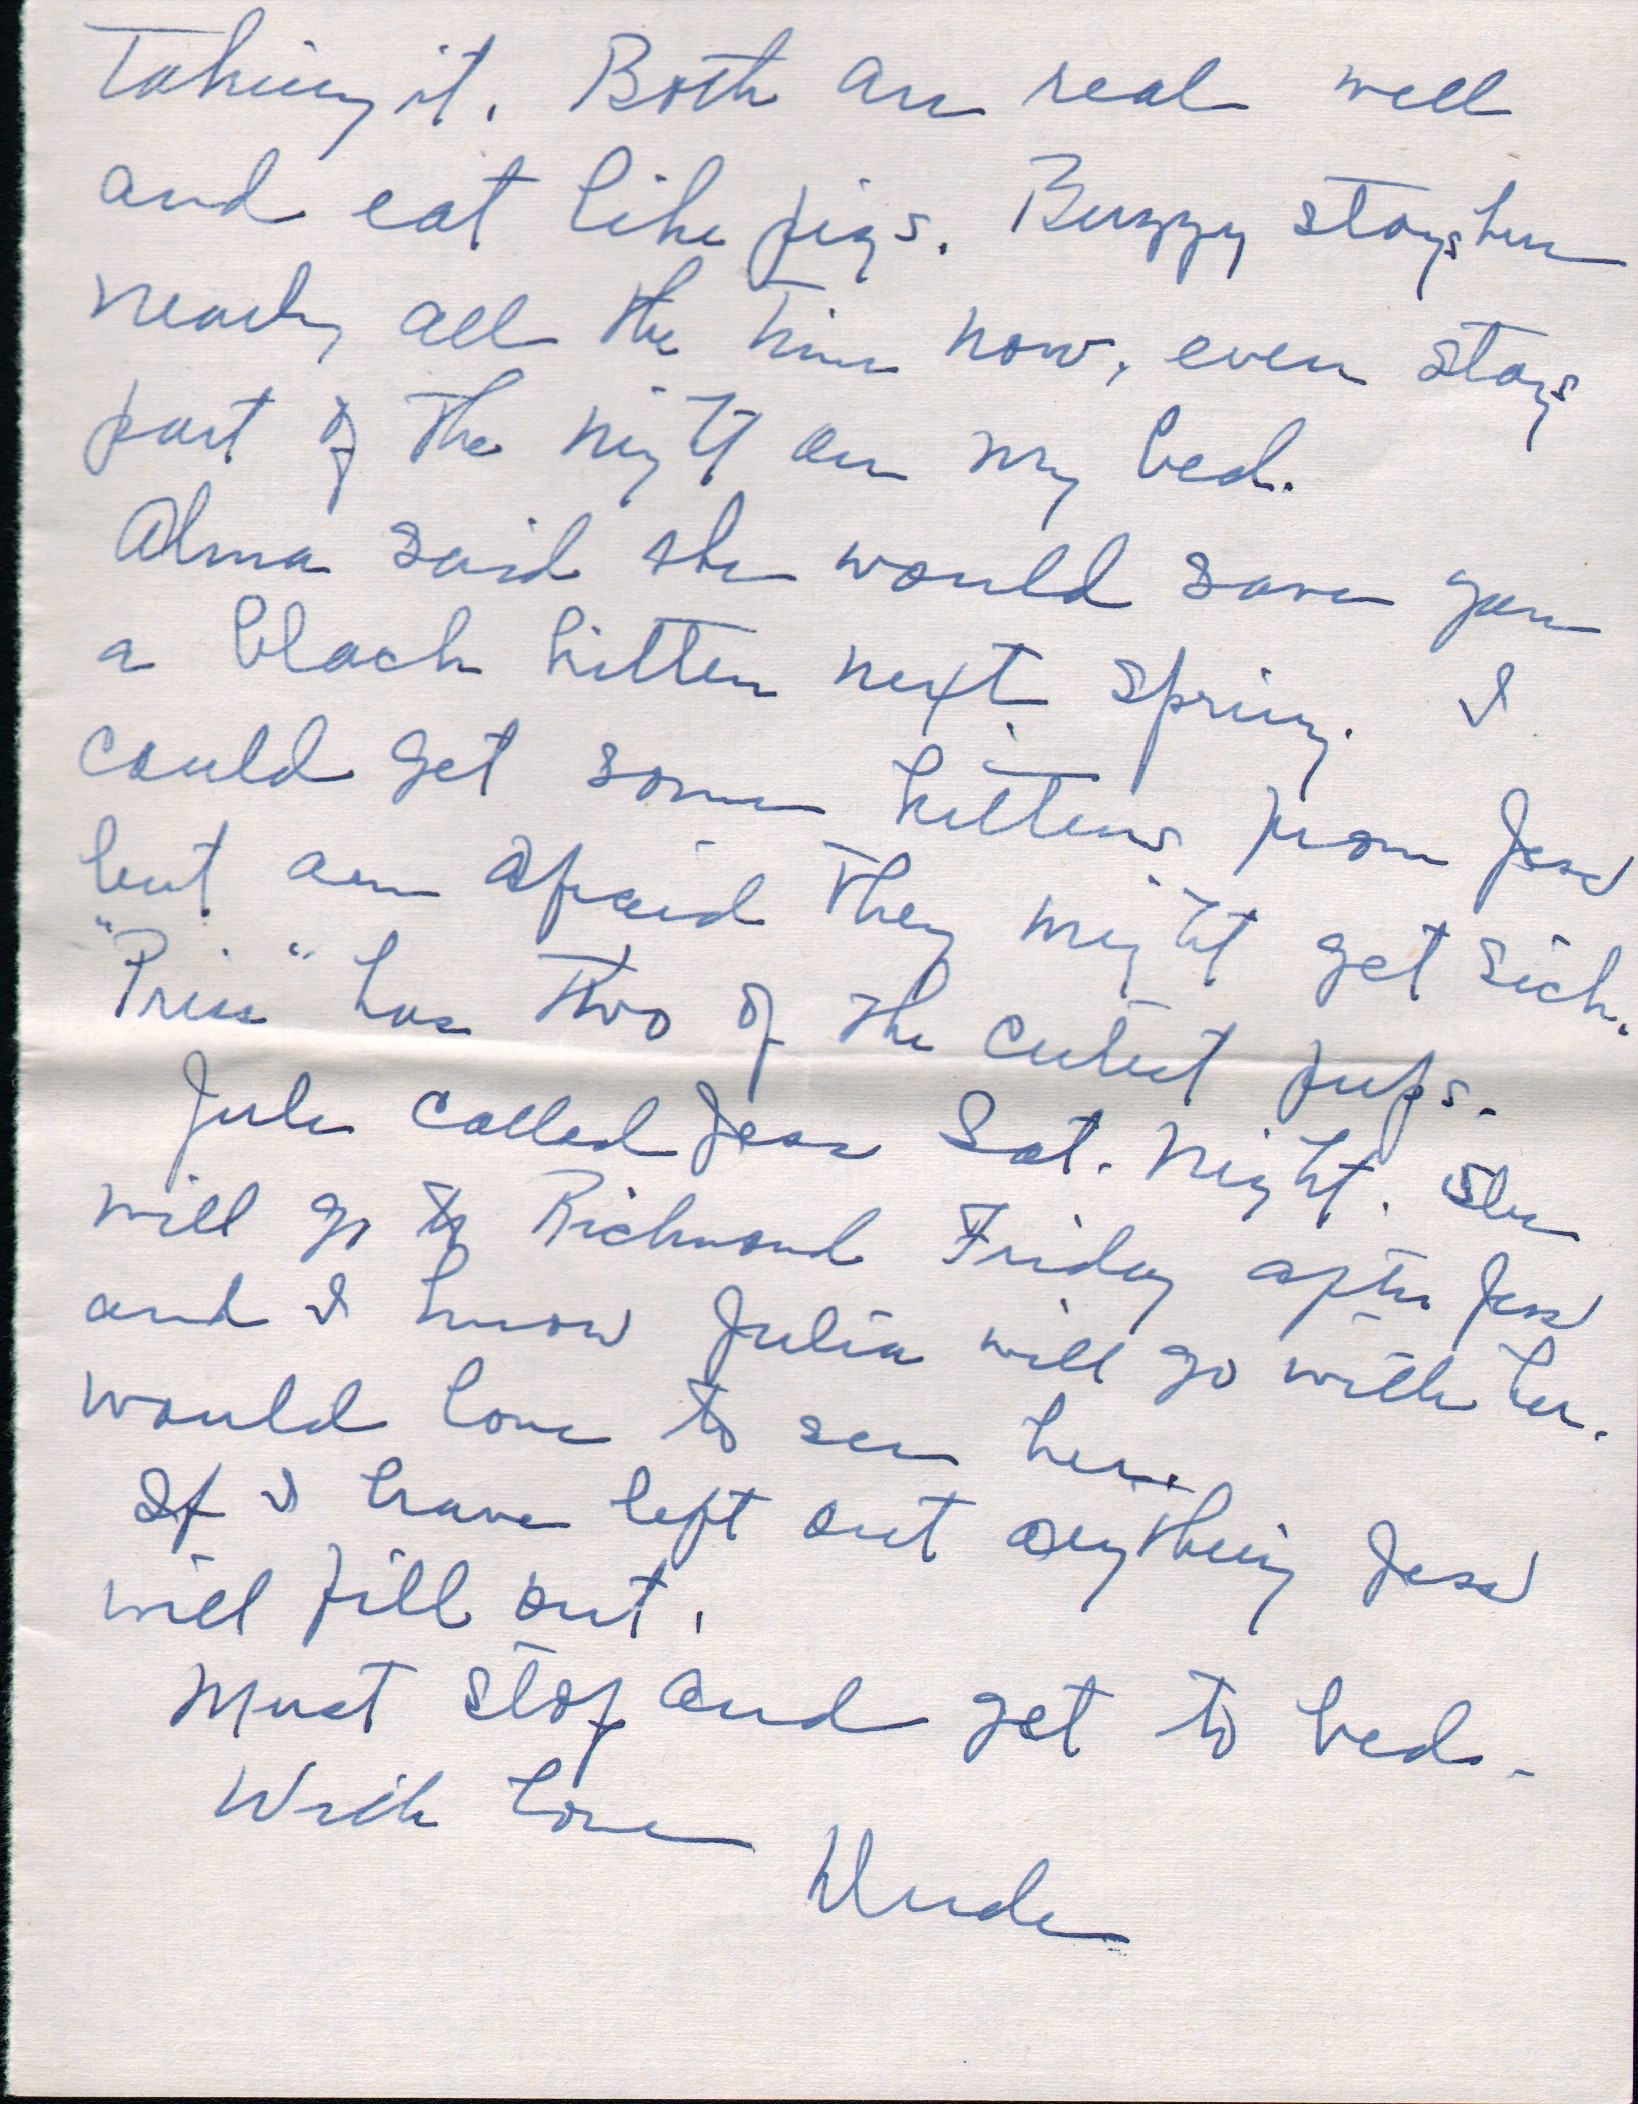 taking it. Both are real well
and eat like pigs. Buzzy stays here
nearly all the time now, even stays
part of the night on my bed.
Alma said she would save you
a black kitten next spring. I
could get some kittens from Jess
but am afraid they might get sick.
"Priss" has two of the cutest pups.
Jule called Jess Sat. night. She
will go to Richmond Friday after Jess
and I know Julia will go with her.
would love to see her.
If I have left out anything Jess
will fill out.
Must stop and get to bed.
With love
Dude